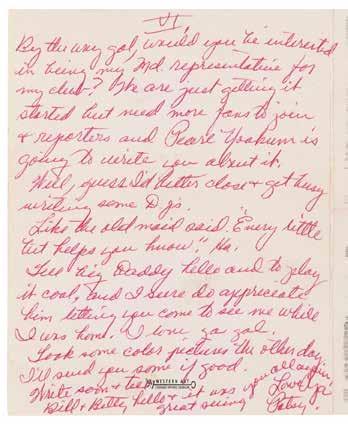 VI,
By the way gal, would you be interested
in being my Md. representative for
my club? We are just getting it
started but need more fans to join
& reporters and Pearl Yoakum is
going to write you about it.
Well, guess I'd better close & get busy
writing some D.Js.
Like the old maid said. "Every little
bit helps you know." Ha.
Tell big Daddy hello and to play
it cool, and I sure do appreciate
him letting you come to see me while
I was home. I love ya gal.
Took some color pictures the other day
I'll send you some if good.
Write soon & tell
Bill & Betty hello & it was
great seeing you all again.
Love Ya'
Patsy.
WESTERN ART